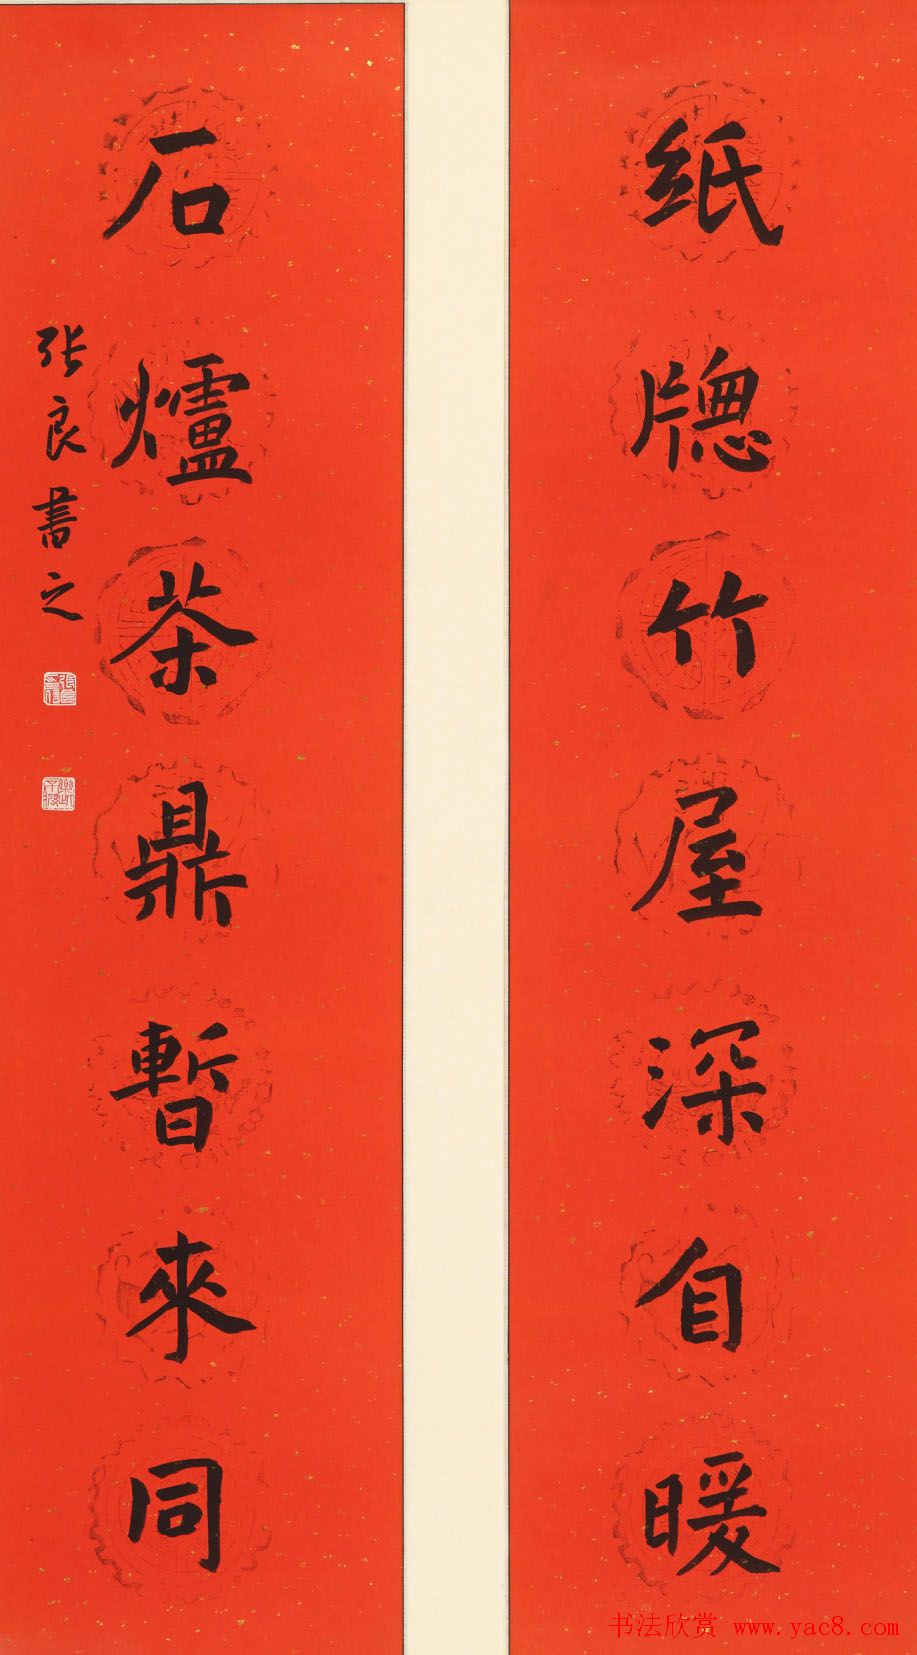 纸牕竹屋深自暖
石爐茶鼎暫來同
张良書之
书法欣赏 www.yac8.com